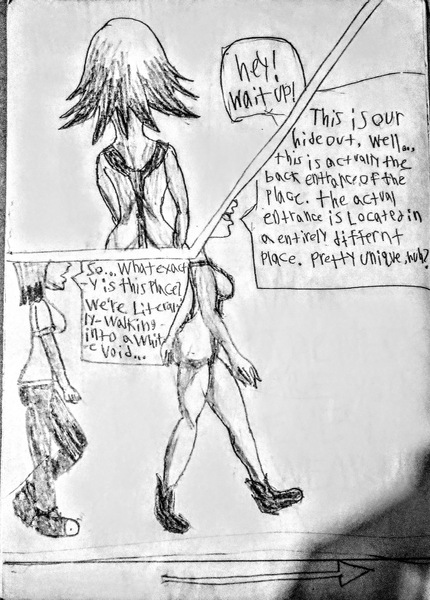 hey!
wait up!
This is our
hideout, well...,
this is actually the
back entrance of the
place. the actual
entrance is Located in
a entirely differnt
place. Pretty unique, huh?
So... what exact-
y is this place?
we're Literall
ly-walking
into a whit
e void...